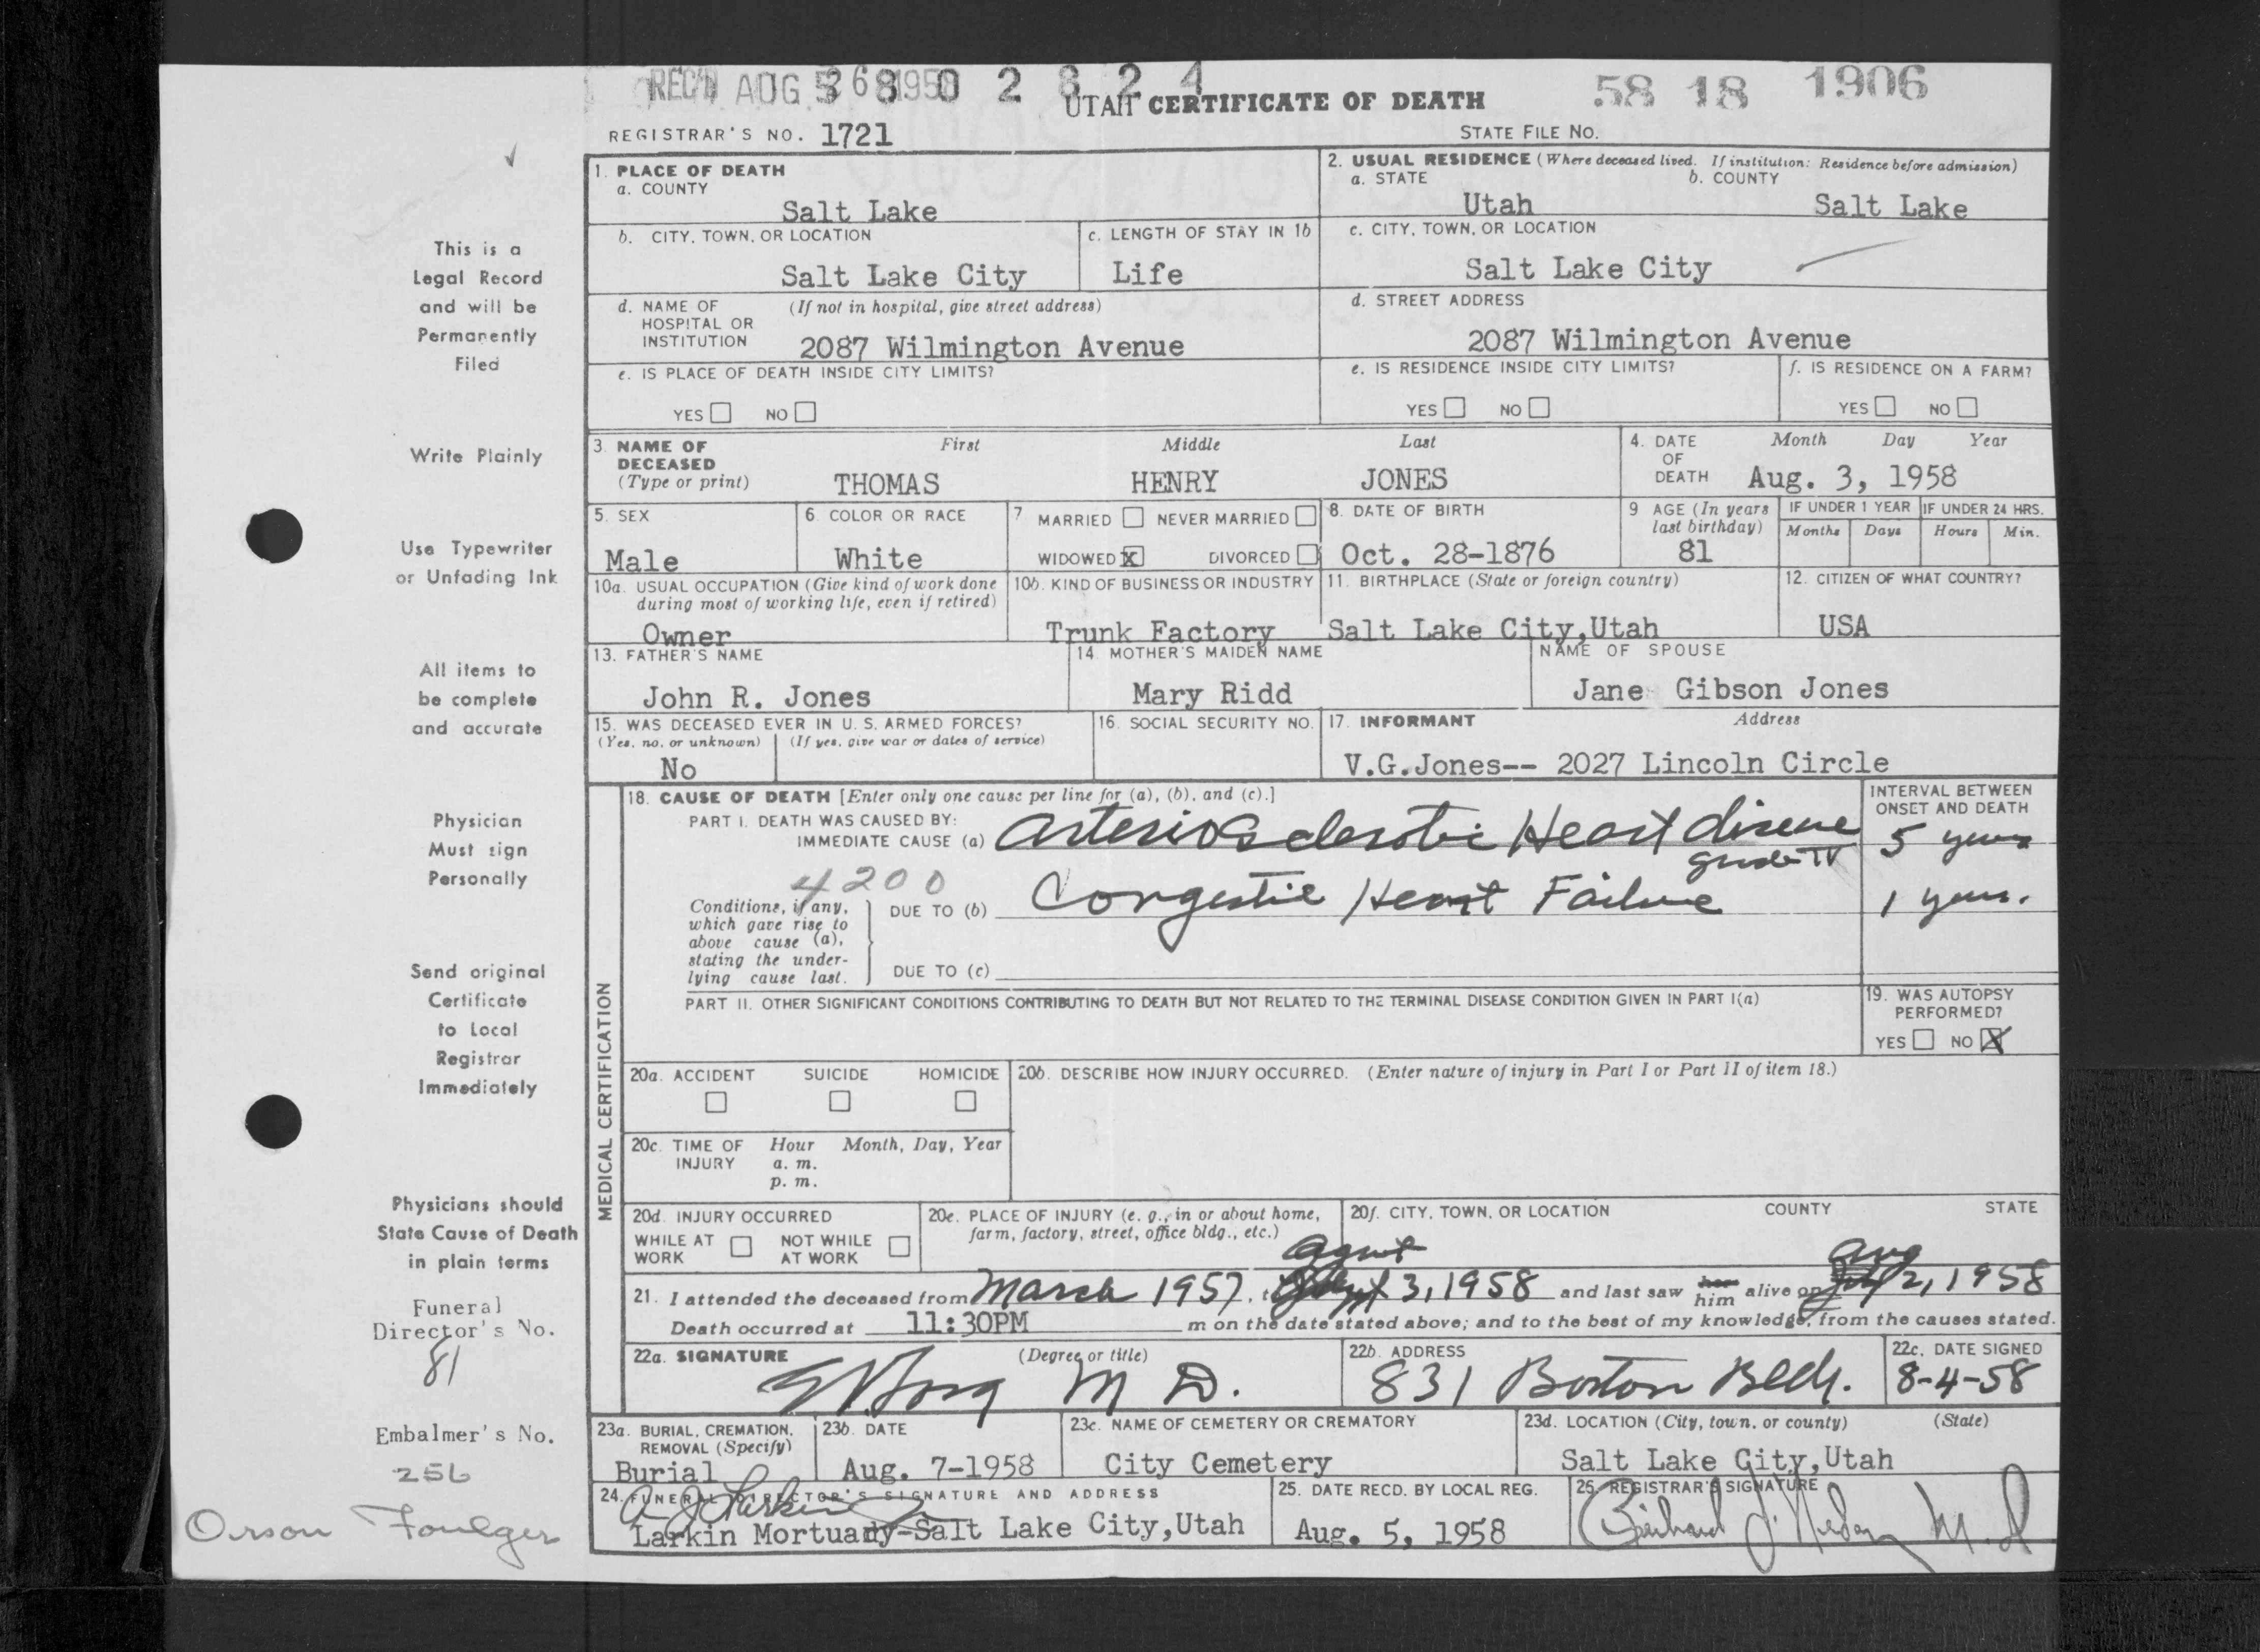 REC'D AUG 1958 0 2 8 2 4
UTAH CERTIFICATE OF DEATH
58 18 1906
REGISTRAR'S NO. 1721
STATE FILE NO.
1. PLACE OF DEATH
a. COUNTY
Salt Lake
2. USUAL RESIDENCE (Where deceased lived. If institution: Residence before admission)
a. STATE b. COUNTY
Utah Salt Lake
b. CITY, TOWN, OR LOCATION
Salt Lake City
c. LENGTH OF STAY IN 1b
Life
c. CITY, TOWN, OR LOCATION
Salt Lake City
d. NAME OF (If not in hospital, give street address)
HOSPITAL OR
INSTITUTION 2087 Wilmington Avenue
d. STREET ADDRESS
2087 Wilmington Avenue
e. IS PLACE OF DEATH INSIDE CITY LIMITS?
YES NO
e. IS RESIDENCE INSIDE CITY LIMITS?
YES NO
f. IS RESIDENCE ON A FARM?
YES NO
3. NAME OF First Middle Last
DECEASED
(Type or print) THOMAS HENRY JONES
4. DATE Month Day Year
OF
DEATH Aug. 3, 1958
5. SEX
Male
6. COLOR OR RACE
White
7 MARRIED NEVER MARRIED
WIDOWED X DIVORCED
8. DATE OF BIRTH
Oct. 28-1876
9 AGE (In years
last birthday)
81
IF UNDER 1 YEAR IF UNDER 24 HRS.
Months Days Hours Min.
10a. USUAL OCCUPATION (Give kind of work done
during most of working life, even if retired)
Owner
10b. KIND OF BUSINESS OR INDUSTRY
Trunk Factory
11. BIRTHPLACE (State or foreign country)
Salt Lake City,Utah
12. CITIZEN OF WHAT COUNTRY?
USA
13. FATHER'S NAME
John R. Jones
14. MOTHER'S MAIDEN NAME
Mary Ridd
NAME OF SPOUSE
Jane Gibson Jones
15. WAS DECEASED EVER IN U. S. ARMED FORCES?
(Yes, no, or unknown) (If yes, give war or dates of service)
No
16. SOCIAL SECURITY NO.
17. INFORMANT Address
V.G.Jones-- 2027 Lincoln Circle
MEDICAL CERTIFICATION
18. CAUSE OF DEATH [Enter only one cause per line for (a), (b), and (c).]
PART I. DEATH WAS CAUSED BY:
IMMEDIATE CAUSE (a) Arteriosclerotic Heart disease
grade IV
INTERVAL BETWEEN
ONSET AND DEATH
5 years
4200
Conditions, if any,
which gave rise to
above cause (a),
stating the under-
lying cause last.
DUE TO (b) Congestive Heart Failure
1 year.
DUE TO (c)
PART II. OTHER SIGNIFICANT CONDITIONS CONTRIBUTING TO DEATH BUT NOT RELATED TO THE TERMINAL DISEASE CONDITION GIVEN IN PART I(a)
19. WAS AUTOPSY
PERFORMED?
YES NO X
20a. ACCIDENT SUICIDE HOMICIDE
20b. DESCRIBE HOW INJURY OCCURRED. (Enter nature of injury in Part I or Part II of item 18.)
20c. TIME OF Hour Month, Day, Year
INJURY a. m.
p. m.
20d. INJURY OCCURRED
WHILE AT NOT WHILE
WORK AT WORK
20e. PLACE OF INJURY (e. g., in or about home,
farm, factory, street, office bldg., etc.)
20f. CITY, TOWN, OR LOCATION COUNTY STATE
August Aug
21. I attended the deceased from March 1957, to 3, 1958 and last saw her him alive on 2, 1958
Death occurred at 11:30PM m on the date stated above; and to the best of my knowledge, from the causes stated.
22a. SIGNATURE (Degree or title)
M D.
22b. ADDRESS
831 Boston Bldg.
22c. DATE SIGNED
8-4-58
23a. BURIAL, CREMATION,
REMOVAL (Specify)
Burial
23b. DATE
Aug. 7-1958
23c. NAME OF CEMETERY OR CREMATORY
City Cemetery
23d. LOCATION (City, town, or county) (State)
Salt Lake City,Utah
24. FUNERAL DIRECTOR'S SIGNATURE AND ADDRESS
Larkin Mortuary-Salt Lake City,Utah
25. DATE RECD. BY LOCAL REG.
Aug. 5, 1958
26. REGISTRAR'S SIGNATURE
M.D
This is a
Legal Record
and will be
Permanently
Filed
Write Plainly
Use Typewriter
or Unfading Ink
All items to
be complete
and accurate
Physician
Must sign
Personally
Send original
Certificate
to Local
Registrar
Immediately
Physicians should
State Cause of Death
in plain terms
Funeral
Director's No.
81
Embalmer's No.
256
Orson Foulger